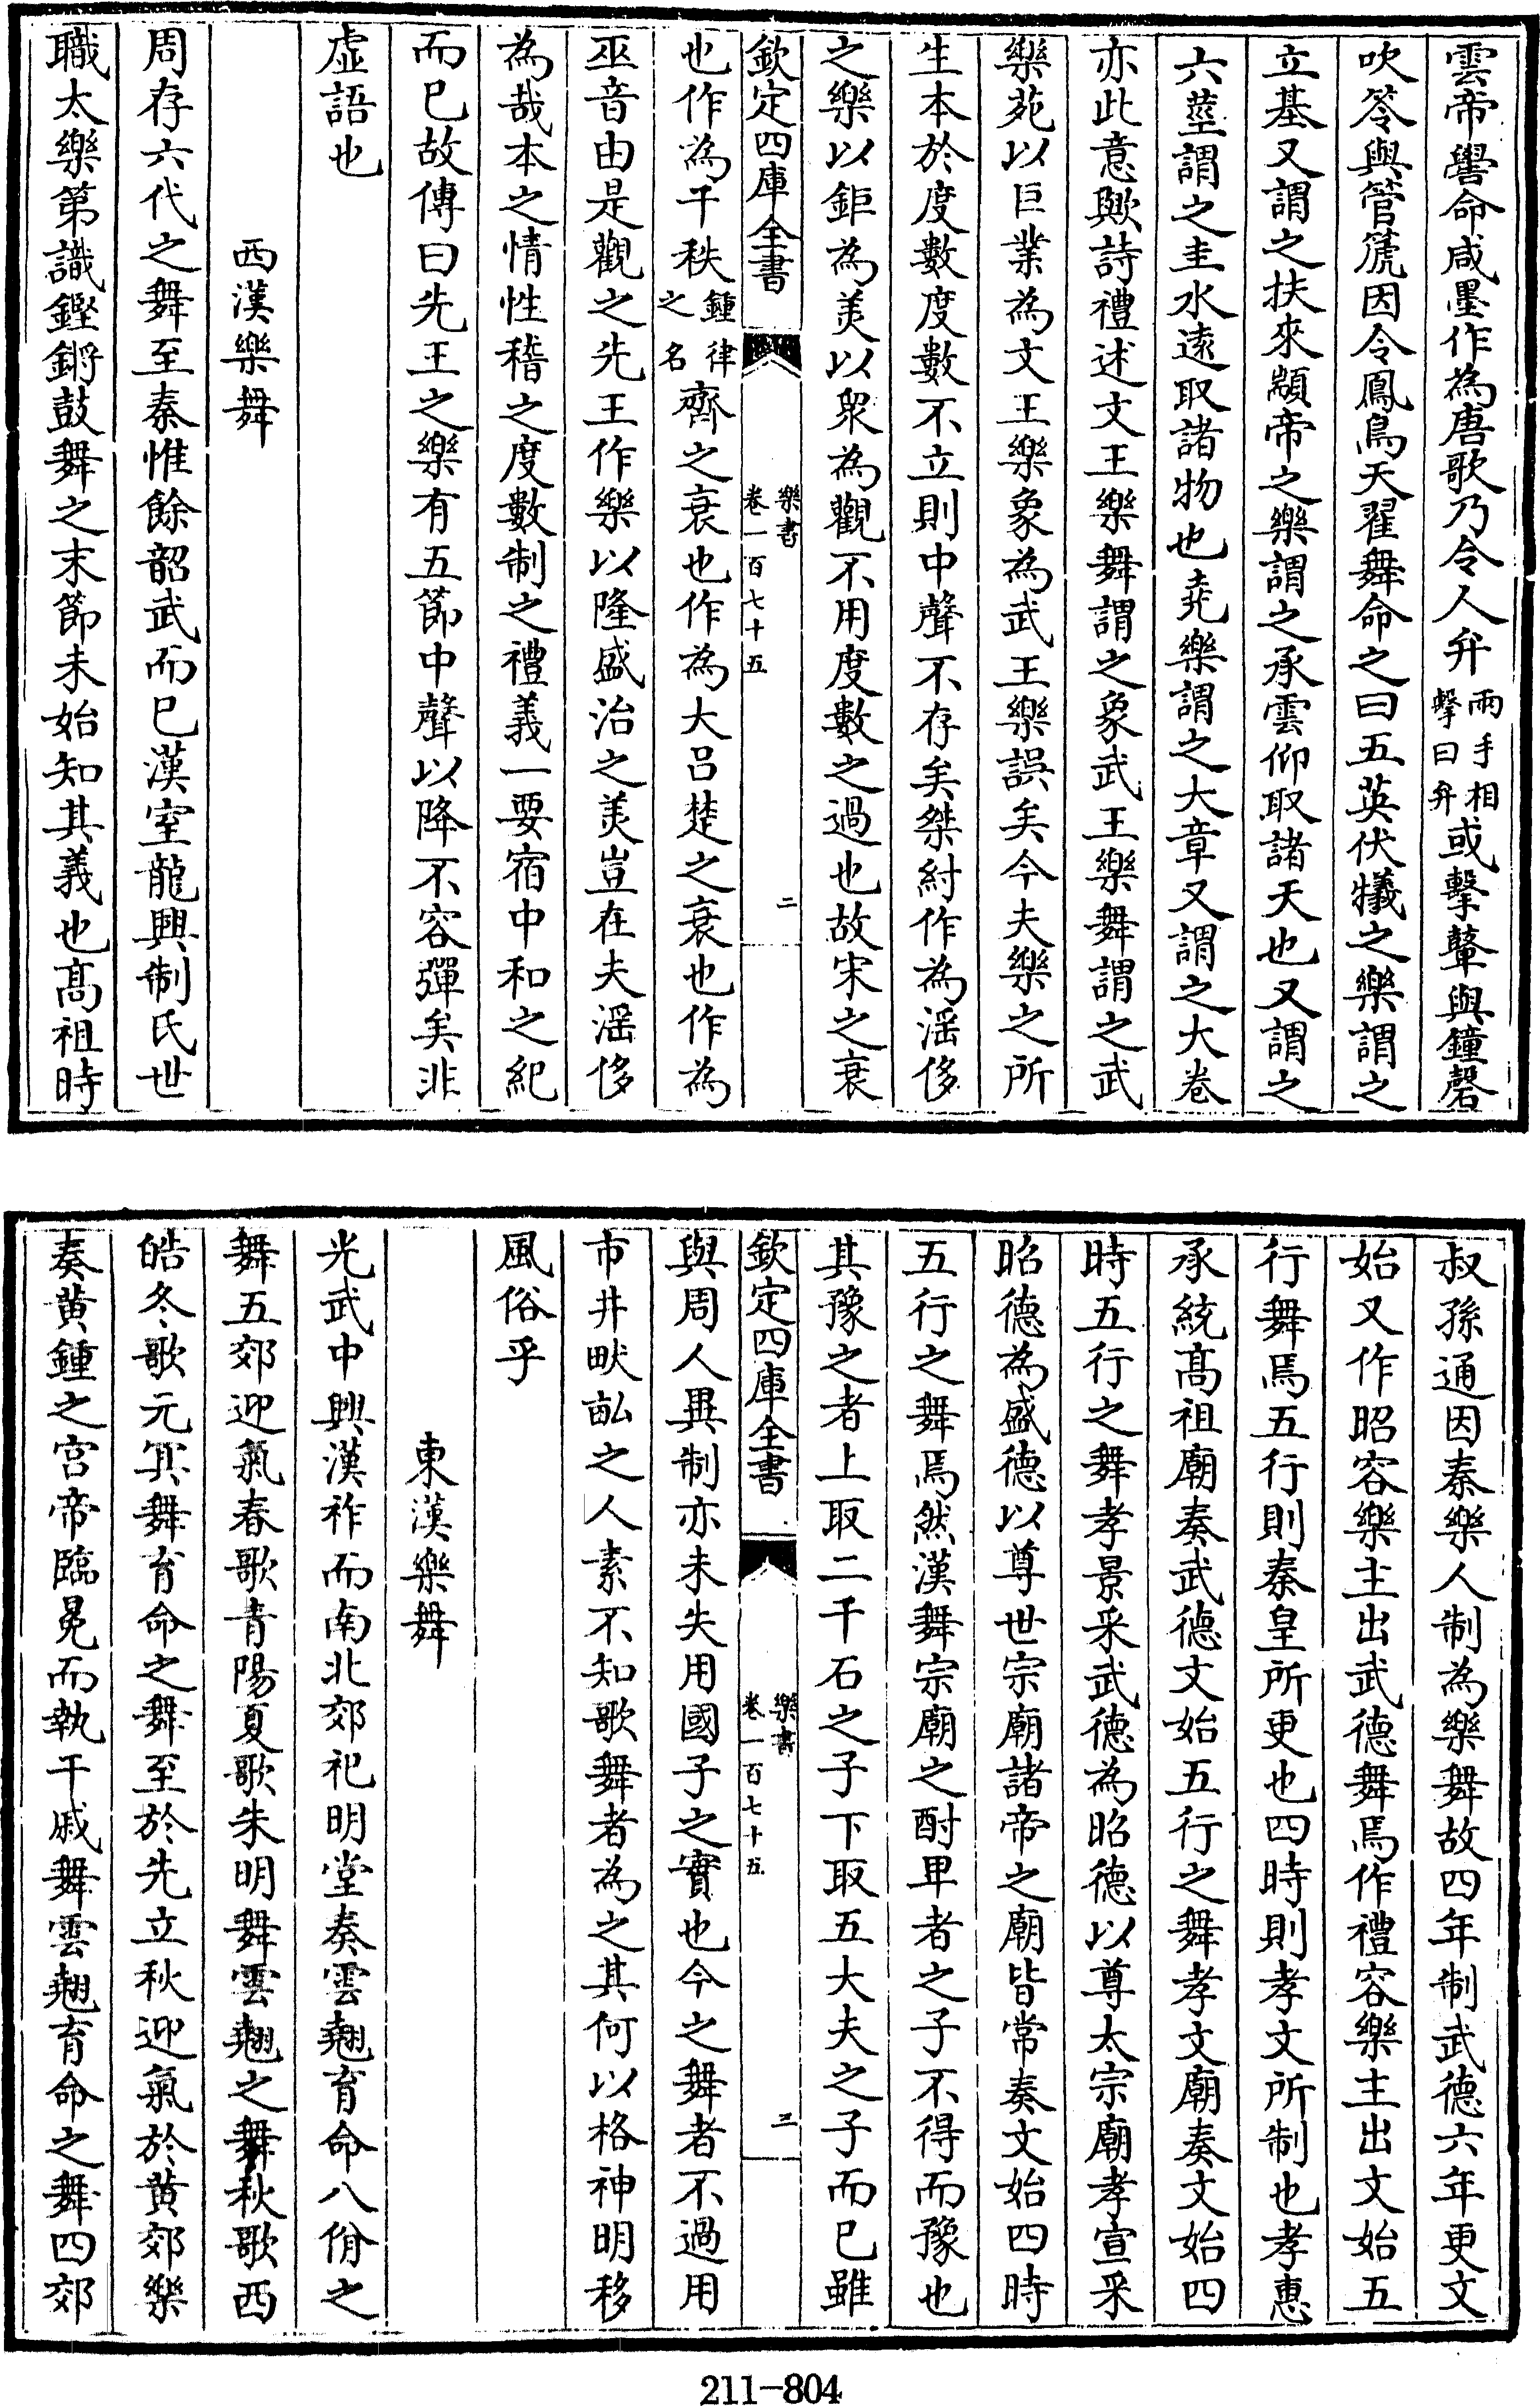 雲帝嚳命咸墨作為唐歌乃令人弁兩手相擊曰弁或擊鼙與鐘磬
吹笭與管箎因令鳳鳥天翟舞命之曰五英伏犧之樂謂之
立基又謂之扶來顓帝之樂謂之承雲仰取諸天也又謂之
六莖謂之圭水逺取諸物也堯樂謂之大章又謂之大卷
亦此意歟詩禮述文王樂舞謂之象武王樂舞謂之武
樂苑以巨業為文王樂象為武王樂誤矣今夫樂之所
生本於度數度數不立則中聲不存矣桀紂作為滛侈
之樂以鉅為美以衆為觀不用度數之過也故宋之衰
欽定四庫全書 樂書 卷一百七十五 二
也作為千秩鍾律之名齊之衰也作為大呂楚之衰也作為
巫音由是觀之先王作樂以隆盛治之美豈在夫滛侈
為哉本之情性稽之度數制之禮義一要宿中和之紀
而已故傳曰先王之樂有五節中聲以降不容彈矣非
虛語也
西漢樂舞
周存六代之舞至秦惟餘韶武而已漢室龍興制氏世
職太樂第識鏗鏘鼓舞之末節未始知其義也髙祖時
叔孫通因秦樂人制為樂舞故四年制武德六年更文
始又作昭容樂主出武德舞焉作禮容樂主出文始五
行舞焉五行則秦皇所更也四時則孝文所制也孝惠
承統髙祖廟奏武德文始五行之舞孝文廟奏文始四
時五行之舞孝景采武德為昭德以尊太宗廟孝宣采
昭德為盛德以尊世宗廟諸帝之廟皆常奏文始四時
五行之舞焉然漢舞宗廟之酎卑者之子不得而豫也
其豫之者上取二千石之子下取五大夫之子而已雖
欽定四庫全書 樂書 卷一百七十五 三
與周人異制亦未失用國子之實也今之舞者不過用
市井畎畝之人素不知歌舞者為之其何以格神明移
風俗乎
東漢樂舞
光武中興漢祚而南北郊祀明堂奏雲翹育命八佾之
舞五郊迎氣春歌青陽夏歌朱明舞雲翹之舞秋歌西
皓冬歌元冥舞育命之舞至於先立秋迎氣於黃郊樂
奏黃鍾之宮帝臨冕而執干戚舞雲翹育命之舞四郊
211-804